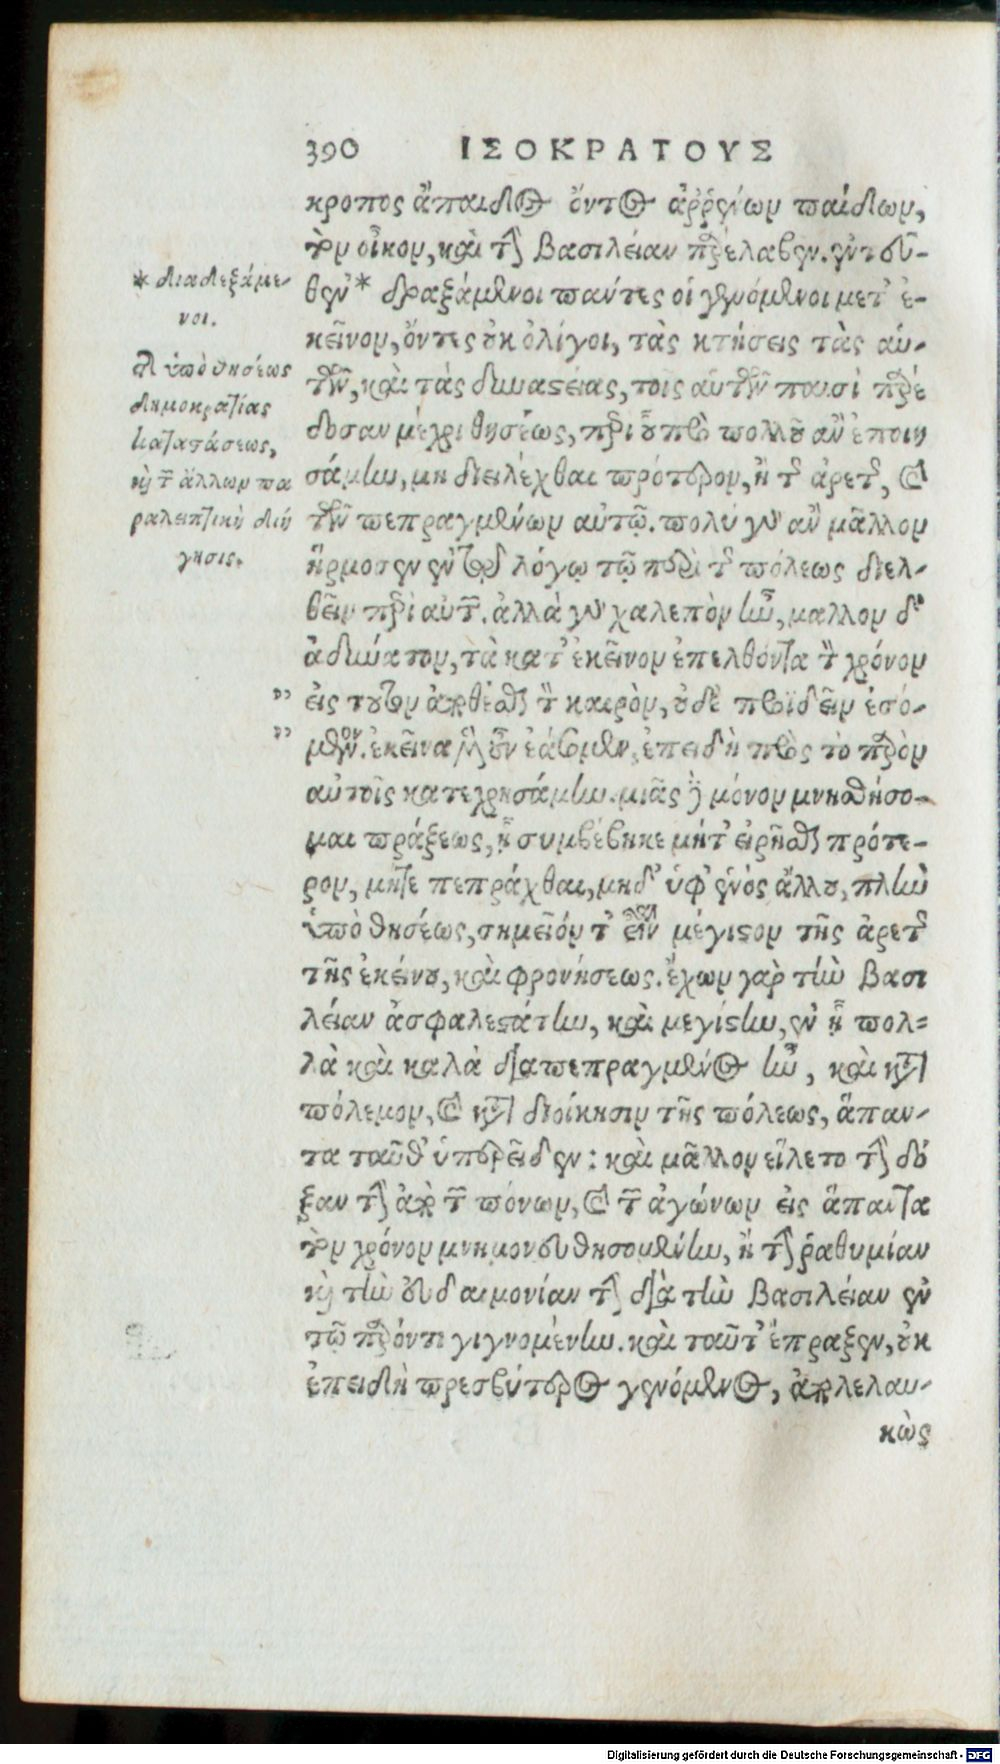 390 ΙΣΟΚΡΑΤΟΥΣ
κροπος ἄπαιδος ὄντος ἀῤῥένων παίδων,
τὸν οἶκον, καὶ τὴν βασιλείαν παρέλαβεν. ἐντεῦ-
θεν * δραξάμενοι πάντες οἱ γενόμενοι μετ' ἐ-
κεῖνον, ὄντες οὐκ ὀλίγοι, τὰς κτήσεις τὰς αὑ-
τῶν, καὶ τὰς δυναστείας, τοῖς αὑτῶν παισὶ παρέ
δοσαν μέχρι θησέως, περὶ οὗ πρὸ πολλοῦ ἂν ἐποιη
σάμην, μὴ διειλέχθαι πρότερον, ἢ τῆς ἀρετῆς, καὶ
τῶν πεπραγμένων αὐτῷ. πολὺ γὰρ ἂν μᾶλλον
ἥρμοσεν ἐν τῷ λόγῳ τῷ περὶ τῆς πόλεως διελ-
θεῖν περὶ αὐτῶν. ἀλλὰ γὰρ χαλεπὸν ἦν, μαλλον δ'
ἀδύνατον, τὰ κατ' ἐκεῖνον ἐπελθόντα τὸν χρόνον
" εἰς τοῦτον ἀποθέσθαι τὸν καιρὸν, ὃν οὐδὲ προϊδεῖν ἐσό-
" μενον. ἐκεῖνα μὲν οὖν ἐάσωμεν, ἐπειδὴ πρὸς τὸ παρὸν
αὐτοῖς κατεχρησάμην. μιᾶς δὲ μόνον μνησθήσο-
μαι πράξεως, ᾗ συμβέβηκε μήτ' εἰρῆσθαι πρότε-
ρον, μήτε πεπράχθαι, μηδ' ὑφ' ἑνὸς ἄλλου, πλὴν
ὑπὸ θησέως, σημεῖόν τ' εἶναι μέγιστον τῆς ἀρετῆς
τῆς ἐκείνου, καὶ φρονήσεως. ἔχων γαρ τὴν βασι
λείαν ἀσφαλεστάτην, καὶ μεγίστην, ἐν ᾗ πολ-
λὰ καὶ καλὰ διαπεπραγμένος ἦν, καὶ κατὰ
πόλεμον, καὶ κατὰ διοίκησιν τῆς πόλεως, ἅπαν-
τα ταῦθ' ὑπερεῖδεν: καὶ μᾶλλον εἵλετο τὴν δό
ξαν τὴν ἀπὸ τῶν πόνων, καὶ τῶν ἀγώνων εἰς ἅπαντα
τὸν χρόνον μνημονευθησομένην, ἢ τὴν ῥαθυμίαν
καὶ τὴν εὐδαιμονίαν τὴν διὰ τὴν βασιλείαν ἐν
τῷ παρόντι γιγνομένην. καὶ ταῦτ' ἔπραξεν, οὐκ
ἐπειδὴ πρεσβύτερος γενόμενος, ἀπολελαυ-
κὼς
* διαδεξάμε-
νοι.
ἡ ὑπὸ θησέως
δημοκρατίας
καταστάσεως,
καὶ τῶν ἄλλων πα
ραλειπτικὴ διή
γησις.
Digitalisierung gefördert durch die Deutsche Forschungsgemeinschaft - DFG